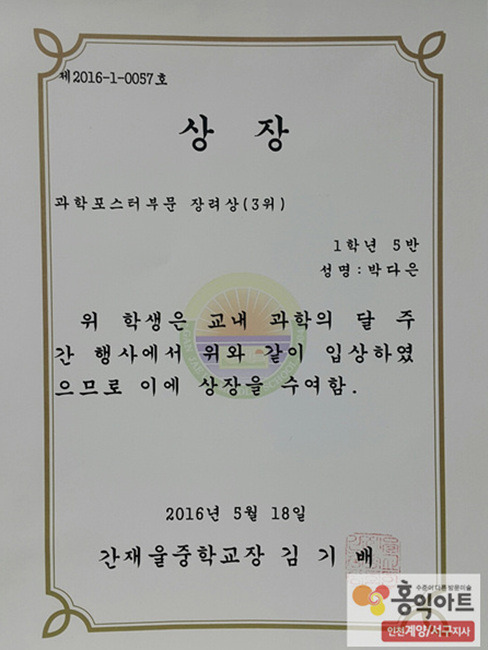 제2016-1-0057호
상 장
과학포스터부문 장려상(3위)
1학년 5반
성명:박다은
위 학생은 교내 과학의 달 주
간 행사에서 위와 같이 입상하였
으므로 이에 상장을 수여함.
2016년 5월 18일
간재울중학교장 김 기 배
수준이 다른 방문미술
홍익아트
인천계양/서구지사